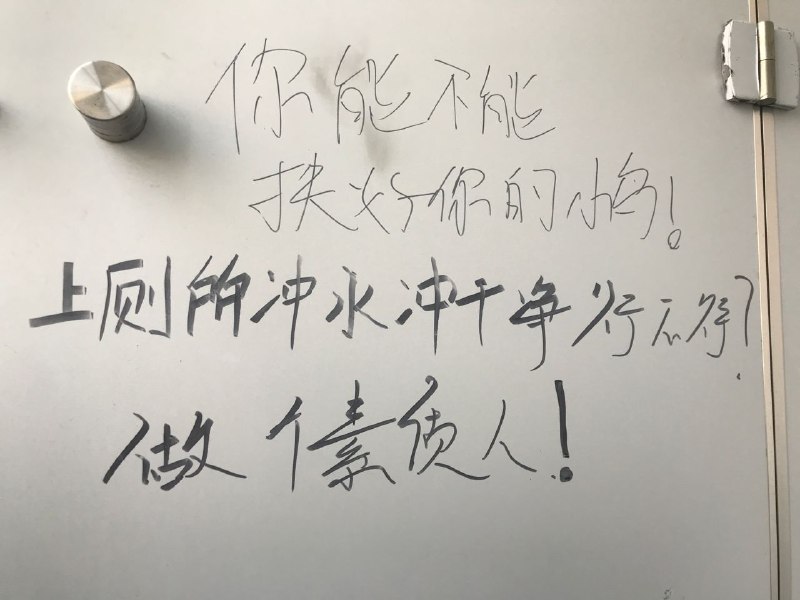 你能不能
扶好你的小鸟!
上厕所冲水冲干净行不行?
做个素质人!